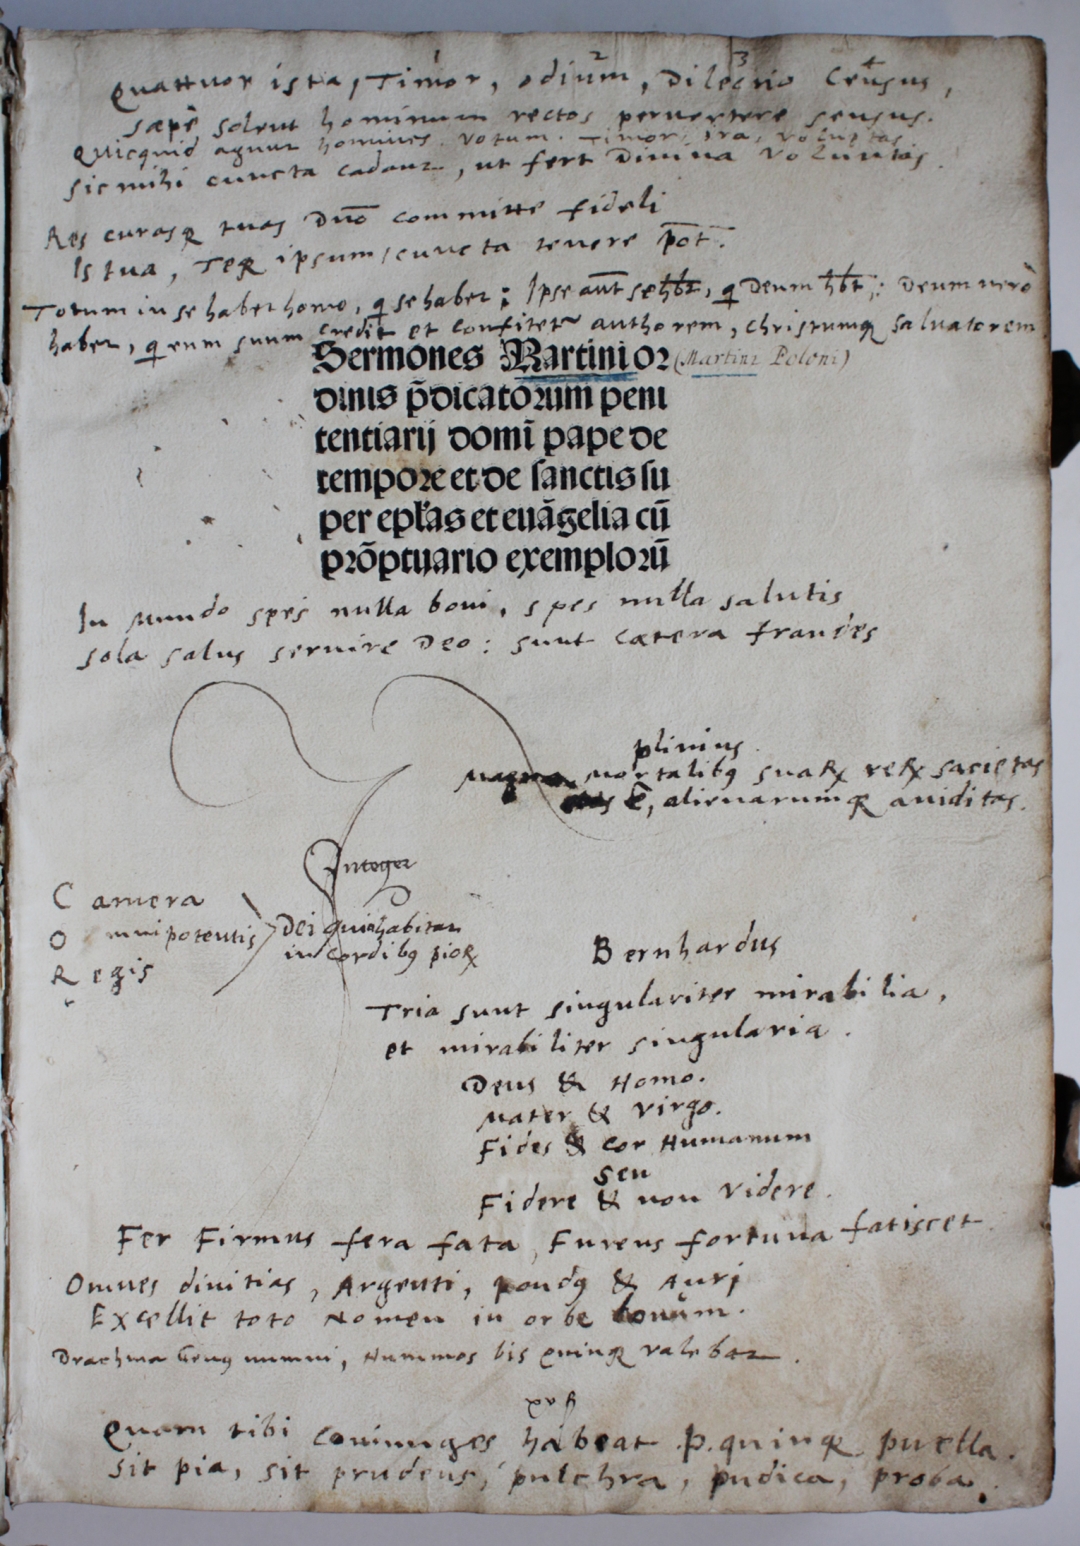 Quattuor ista, Timor, odium, Dilectio Census,
sæpe solent hominum rectos pervertere sensus.
Quicquid agunt homines votum. Timor, ira, voluptas
sic mihi cuncta cadant, ut fert Divina Voluntas.
Res curasq tuas Dno committe fideli
Is tua, Teq ipsum, cuncta tenere pot.
Totum in se habet homo, q se habet; Ipse aut se hbt, q Deum hbt; Deum vero
habet, q eum suum credit et confitetr authorem, christumq salvatorem
Sermones Martini or (Martini Poloni)
dinis p̄dicatorum peni
tentiarij domī pape de
tempore et de sanctis su
per epl̄as et euāgelia cū
prōptuario exemplorū
In Mundo spes nulla boni, spes nulla salutis
sola salus servire Deo: sunt cætera fraudes
plinius.
Magna mortalibꝯ suaꝝ reꝝ sacietas
ē, alienarumq aviditas.
Integer
Camera
Omnipotentis
Regis
Dei quia habitat
in cordibꝯ pioꝝ
Bernhardus
Tria sunt singulariter mirabilia,
et mirabiliter singularia.
Deus & Homo.
Mater & Virgo.
Fides & cor Humanum
seu
Fidere & non Videre.
Fer Firmus fera fata, Furens fortuna fatiscet
Omnes divitias, Argenti, pondꝯ & Auri
Excellit toto Nomen in orbe bonum.
Drachma Genꝯ nummi, Nummos bis quinq valebat.
Quam tibi coniunges habeat .P. quinq puella.
sit pia, sit prudens, pulchra, pudica, proba.